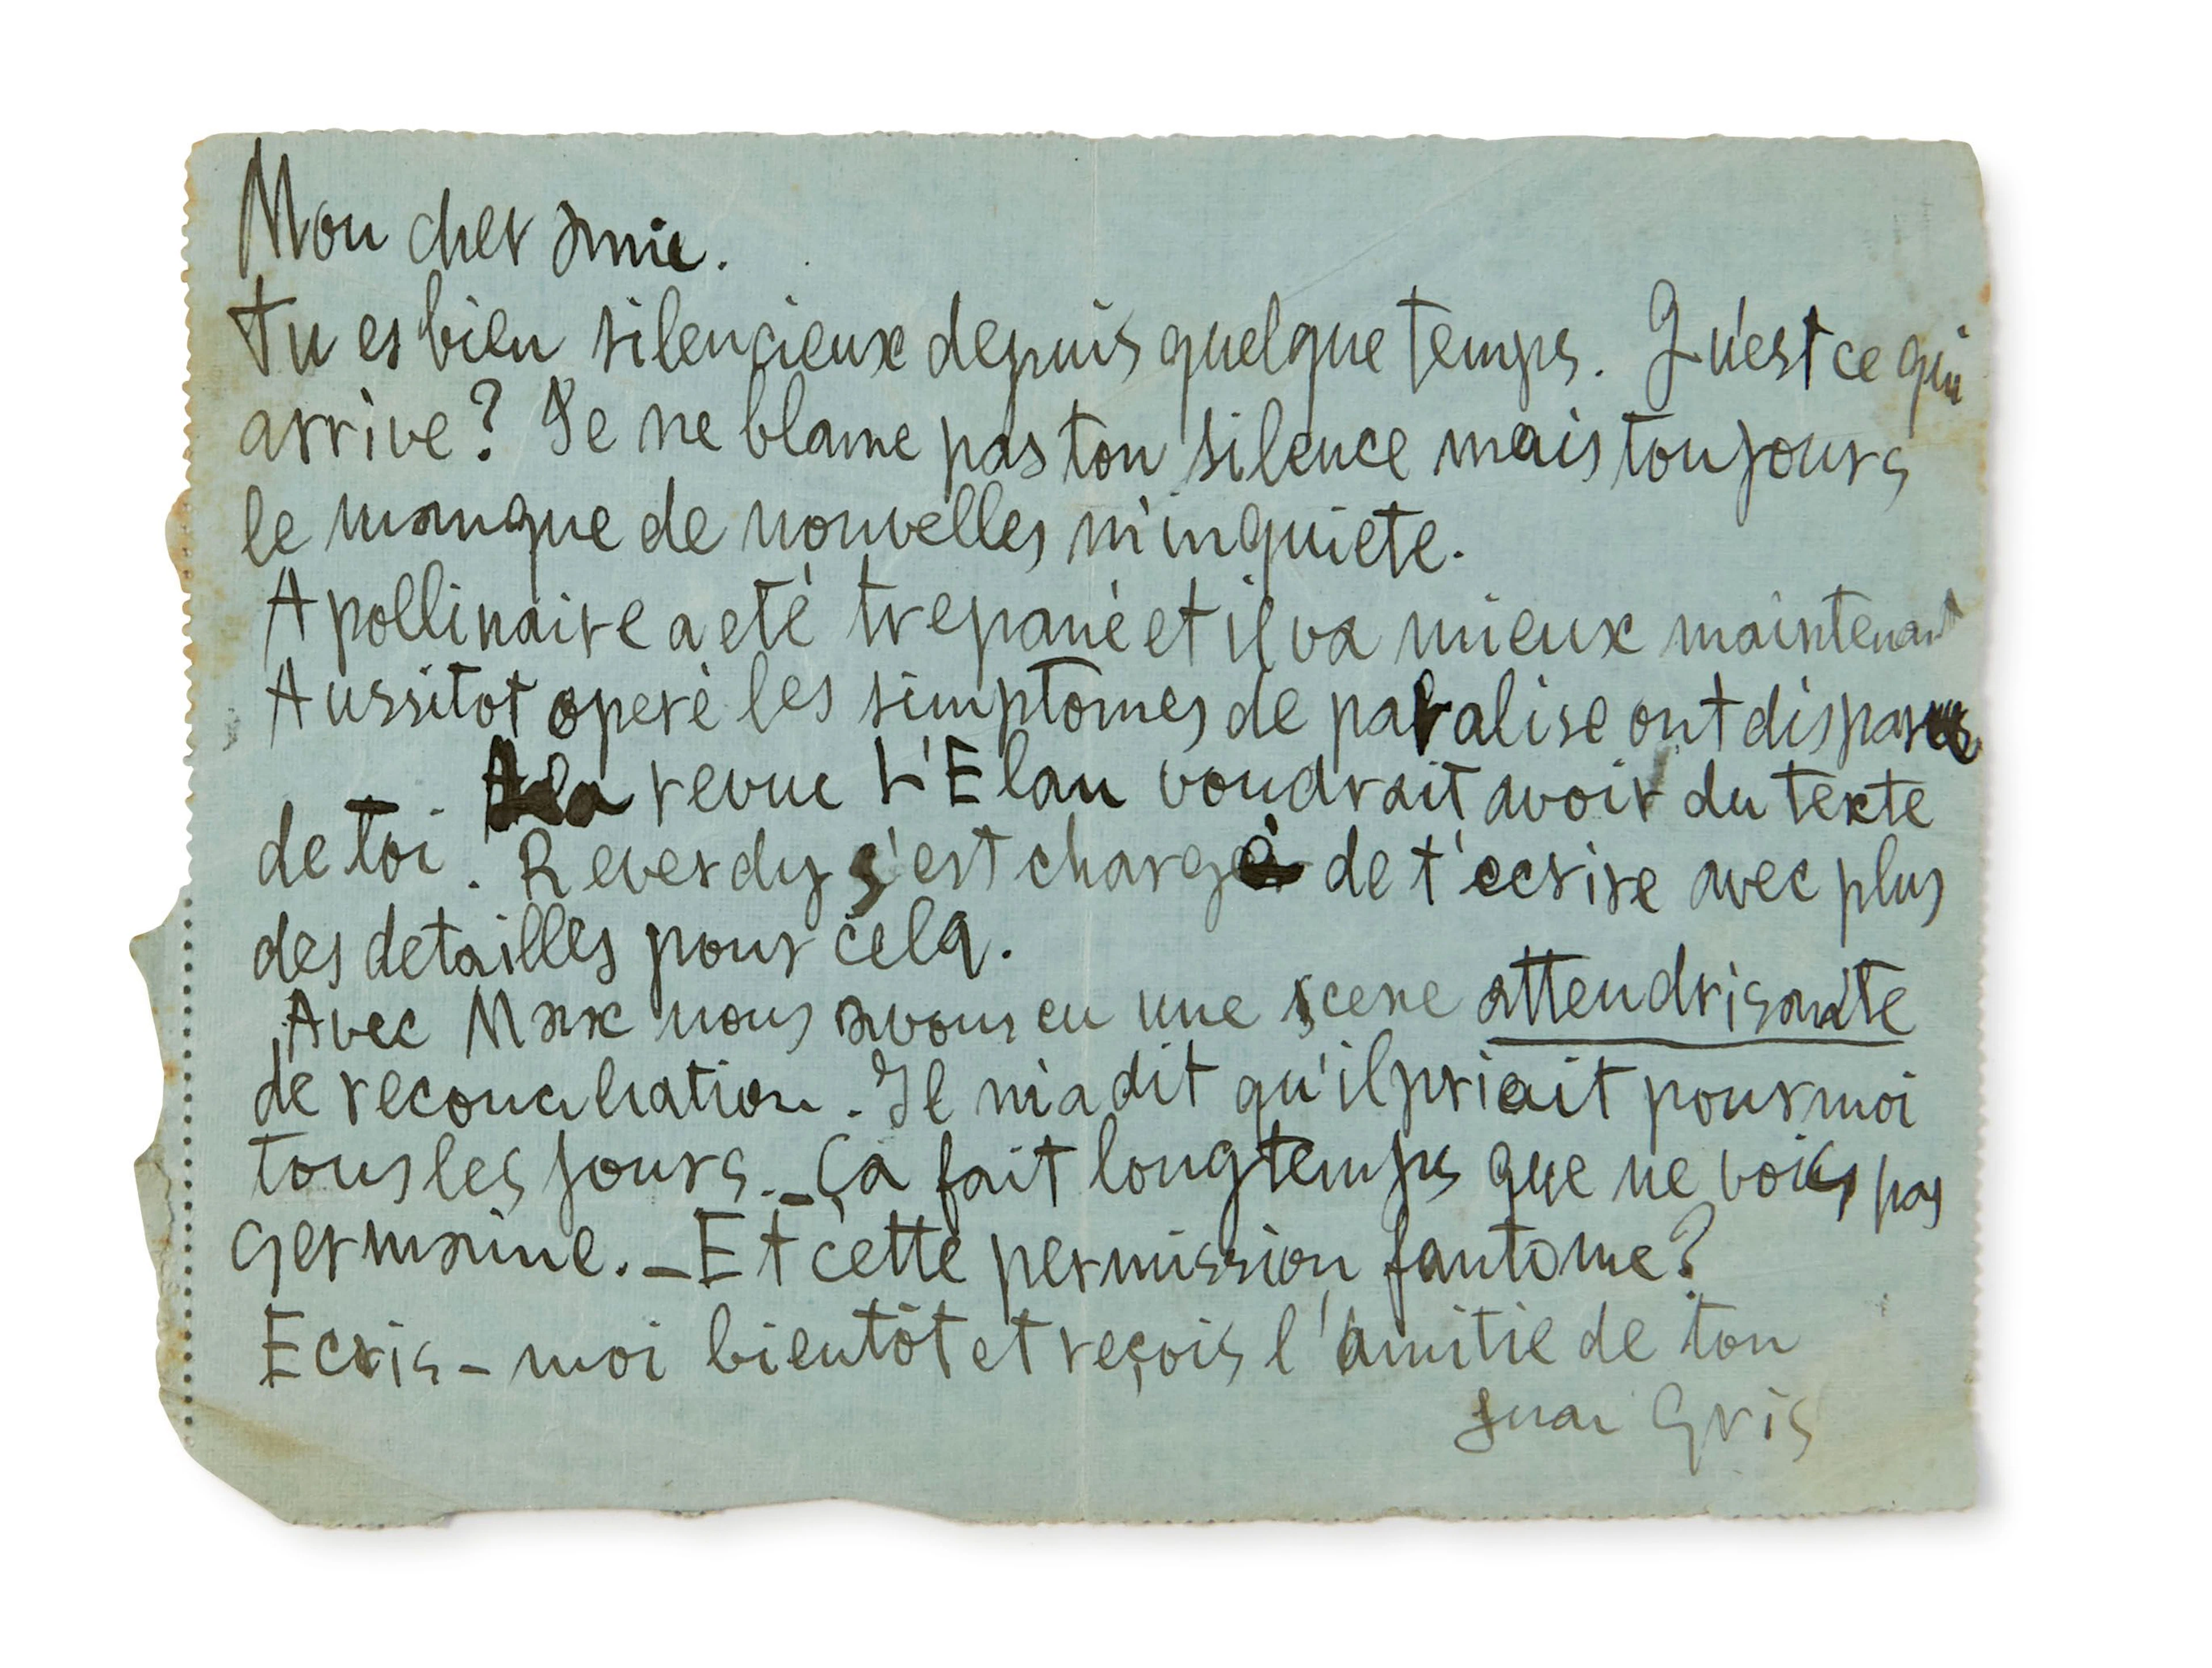 Mon cher amie.
Tu es bien silencieux depuis quelque temps. Qu'est ce qui
arrive? Je ne blame pas ton silence mais toujours
le manque de nouvelles m'inquiete.
Apollinaire a eté trepané et il va mieux maintenant
Aussitot operé les simptomes de paralise ont disparus
la revue L'Elan voudrait avoir du texte
de toi. Reverdy s'est chargé de t'ecrire avec plus
des detailles pour cela.
Avec Max nous avons eu une scene attendrisante
de reconciliation. Il m'a dit qu'il priait pour moi
tous les jours._Ça fait longtemps que ne vois pas
Germaine._Et cette permission fantome?
Ecris-moi bientôt et reçois l'amitié de ton
Juan Gris